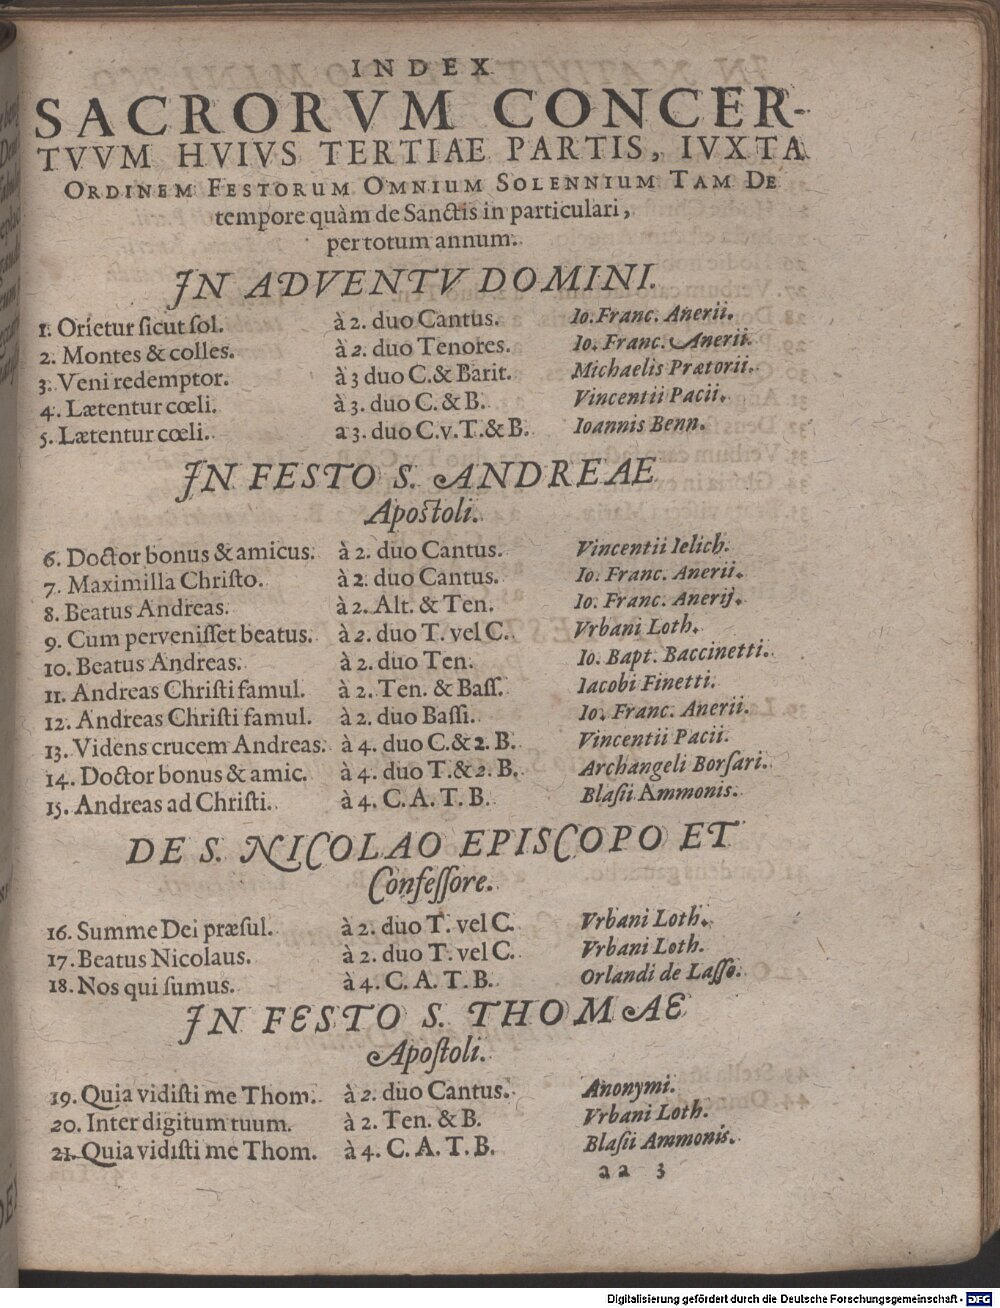 INDEX
SACRORVM CONCER-
TVVM HVIVS TERTIAE PARTIS, IVXTA
ORDINEM FESTORUM OMNIUM SOLENNIUM TAM DE
tempore quàm de Sanctis in particulari,
per totum annum.
IN ADVENTV DOMINI.
1. Orietur ſicut ſol. à 2. duo Cantus. Io. Franc. Anerii.
2. Montes & colles. à 2. duo Tenores. Io. Franc. Anerii.
3. Veni redemptor. à 3 duo C. & Barit. Michaelis Prætorii.
4. Lætentur cœli. à 3. duo C. & B. Vincentii Pacii.
5. Lætentur cœli. a 3. duo C. v. T. & B. Ioannis Benn.
IN FESTO S. ANDREAE
Apostoli.
6. Doctor bonus & amicus. à 2. duo Cantus. Vincentii Ielich.
7. Maximilla Chriſto. à 2. duo Cantus. Io. Franc. Anerii.
8. Beatus Andreas. à 2. Alt. & Ten. Io. Franc. Anerij.
9. Cum perveniſſet beatus. à 2. duo T. vel C. Vrbani Loth.
10. Beatus Andreas. à 2. duo Ten. Io. Bapt. Baccinetti.
11. Andreas Chriſti famul. à 2. Ten. & Baſſ. Iacobi Finetti.
12. Andreas Chriſti famul. à 2. duo Baſſi. Io. Franc. Anerii.
13. Videns crucem Andreas. à 4. duo C. & 2. B. Vincentii Pacii.
14. Doctor bonus & amic. à 4. duo T. & 2. B. Archangeli Borſari.
15. Andreas ad Chriſti. à 4. C. A. T. B. Blaſii Ammonis.
DE S. NICOLAO EPISCOPO ET
Confeſſore.
16. Summe Dei præſul. à 2. duo T. vel C. Vrbani Loth.
17. Beatus Nicolaus. à 2. duo T. vel C. Vrbani Loth.
18. Nos qui ſumus. à 4. C. A. T. B. Orlandi de Laſſo.
IN FESTO S. THOMAE
Apoſtoli.
19. Quia vidiſti me Thom. à 2. duo Cantus. Anonymi.
20. Inter digitum tuum. à 2. Ten. & B. Vrbani Loth.
21. Quia vidiſti me Thom. à 4. C. A. T. B. Blaſii Ammonis.
aa 3
Digitalisierung gefördert durch die Deutsche Forschungsgemeinschaft - DFG